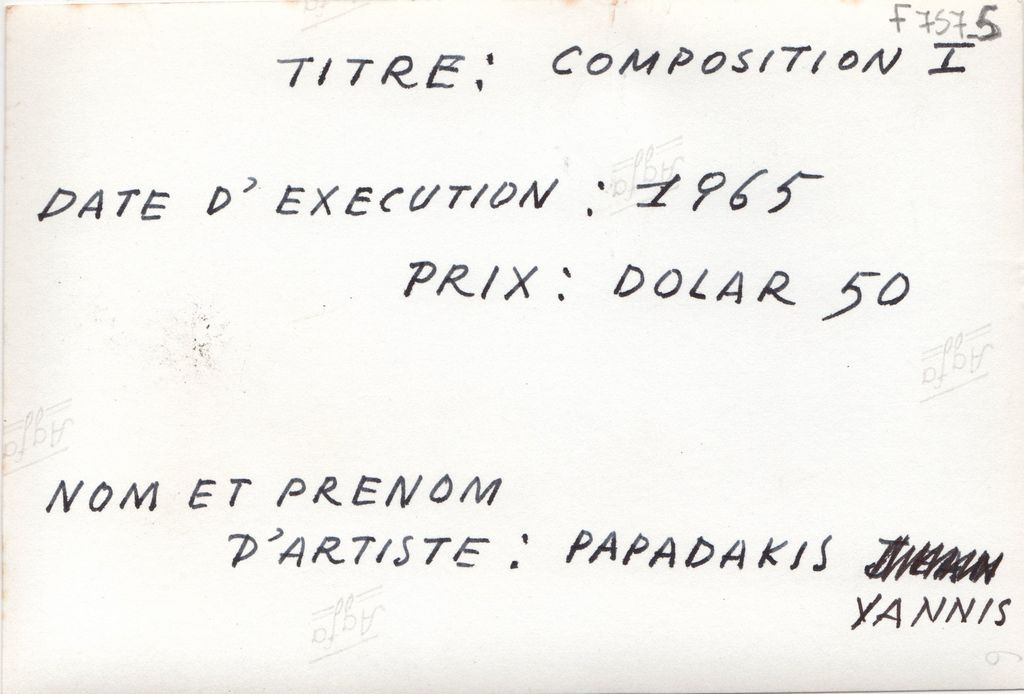 F 757_5
TITRE: COMPOSITION I
DATE D'EXECUTION: 1965
PRIX: DOLAR 50
NOM ET PRENOM
D'ARTISTE: PAPADAKIS
YANNIS
Agfa
Agfa
Agfa
Agfa